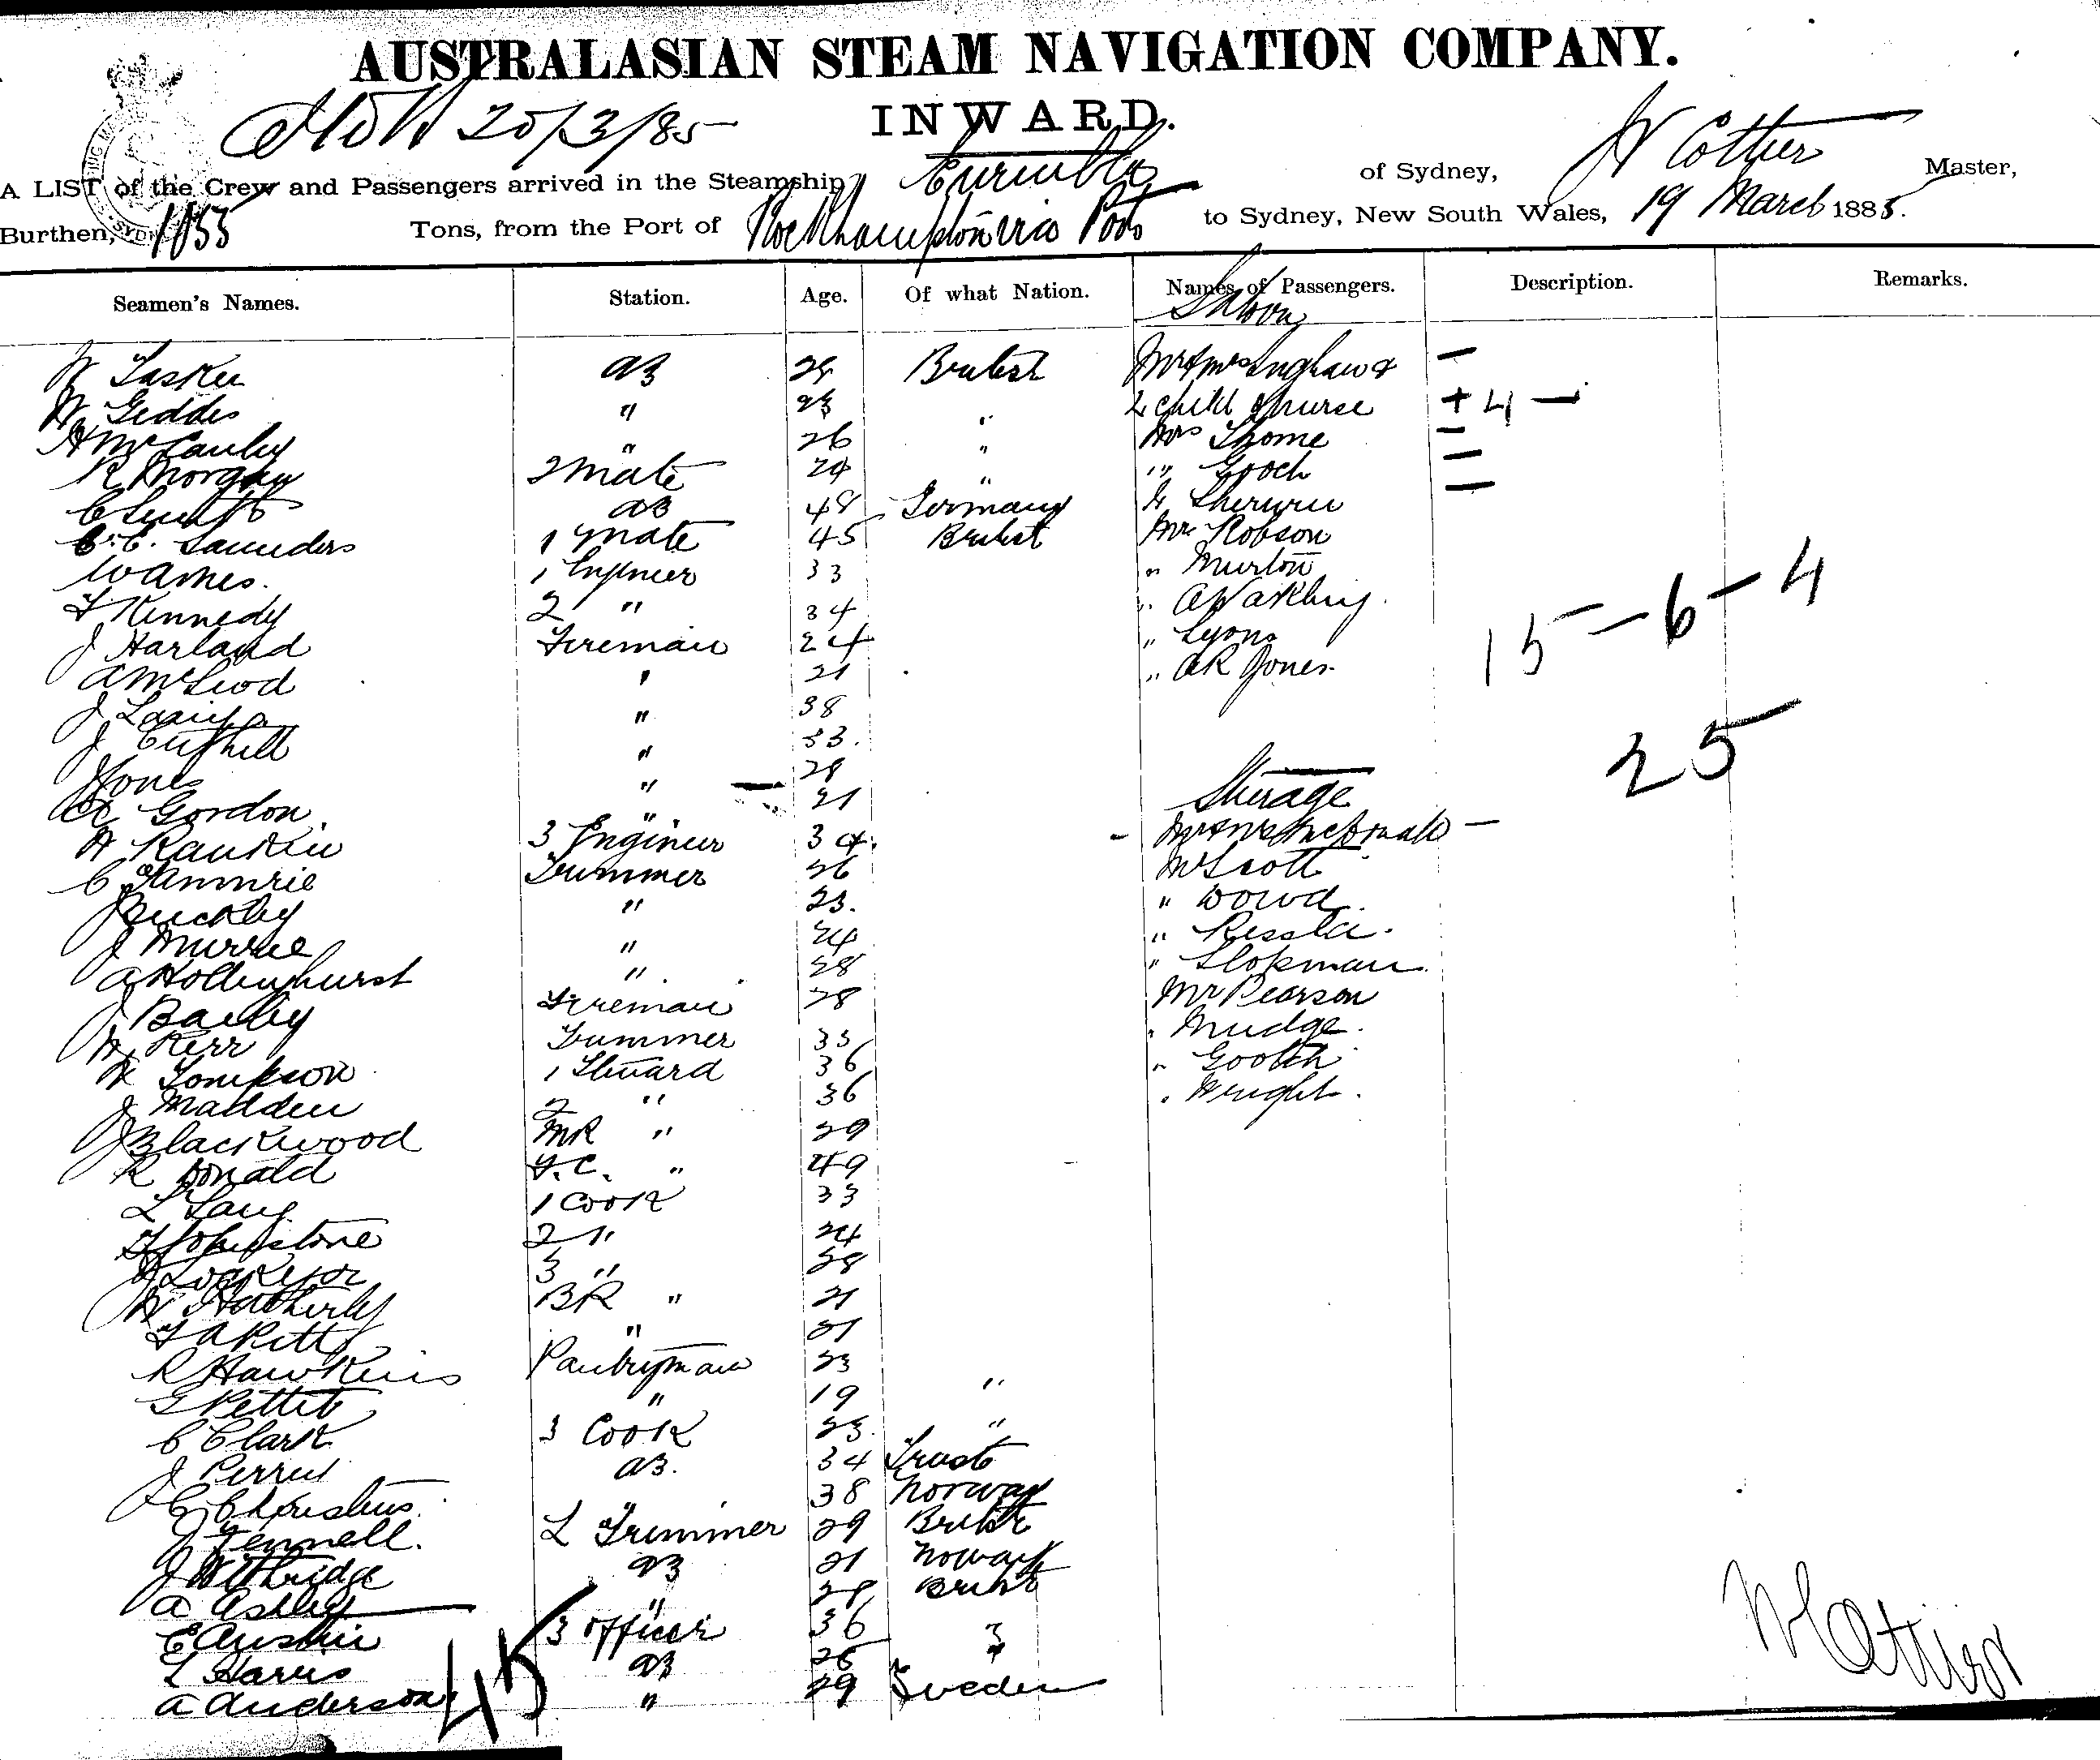 AUSTRALASIAN STEAM NAVIGATION COMPANY.
INWARD.
20/3/85
A LIST of the Crew and Passengers arrived in the Steamship Eurimbla of Sydney, Cottier Master,
Burthen, 1055 Tons, from the Port of Rockhampton via Ports to Sydney, New South Wales, 19 March 1885.
Seamen's Names. Station. Age. Of what Nation. Names of Passengers. Description. Remarks.
Saloon
W Tasker AB British Mr & Mrs Ingham &
W Geddes " 23 " 2 child & nurse + 4 —
H McCauley " 26 " Mrs Thome
R Morgan 2 Mate 24 " " Gooch
AB 48 Germany
C. C. Saunders 1 Mate 45 British Mr Robson
W Ames. 1 Engineer 33 " Murton
T Kennedy 2 " 34 "
J Harland Fireman 24 " Lyons
A McLeod " 21 " AR Jones
J " 38
J Cuthill " 33.
Jones " 28
Gordon. " 21 Steerage
H Rankin 3 Engineer 34. Mr & Mrs McDonald —
C Trimmer 26 Mr Scott
J Buckley " 23. " Dowd
J Murrie " 24 "
A Hollinghurst " 28 "
J Bailey Fireman 28 Mr Pearson
W Kerr Trimmer 33 " Mudge.
Tompson 1 Steward 36 "
J Madden 2 " 36 " Wright.
J Blackwood MR " 29
R Donald F.C. " 49
L Lang 1 Cook 33
T Johnstone 2 " 24
J Lockyer 3 " 28
W Hatherly BR " 21
" 21
R Hawkins Pantryman 23
G Pettit " 19 "
C Clark 3 Cook 23. "
J AB. 34
C " 38 Norway
J Fennell. L Trimmer 29 British
J Withridge AB 21 Norway
A Ashley " 28 British
E Austin 3 Officer 36 "
L Harris AB 26 "
A Anderson " 29 Sweden
15 — 6 — 4
25
45